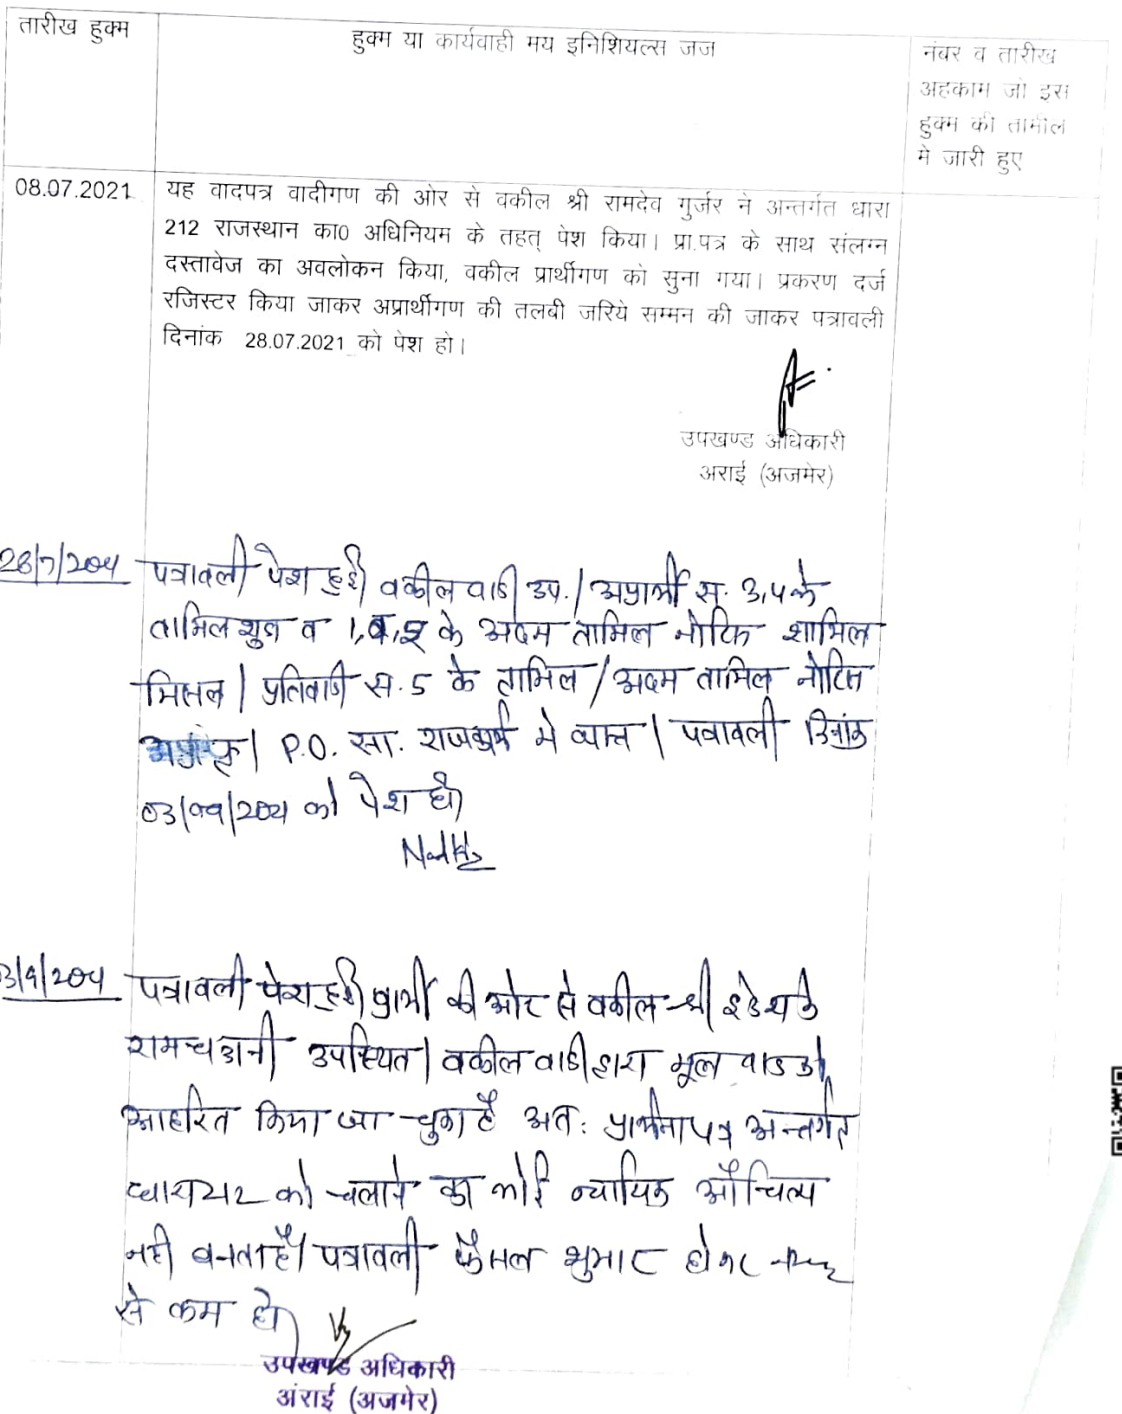 तारीख हुक्म
हुक्म या कार्यवाही मय इनिशियल्स जज
नंबर व तारीख
अहकाम जो इस
हुक्म की तामील
मे जारी हुए
08.07.2021
यह वादपत्र वादीगण की ओर से वकील श्री रामदेव गुर्जर ने अन्तर्गत धारा
212 राजस्थान का0 अधिनियम के तहत् पेश किया। प्रा.पत्र के साथ संलग्न
दस्तावेज का अवलोकन किया, वकील प्रार्थीगण को सुना गया। प्रकरण दर्ज
रजिस्टर किया जाकर अप्रार्थीगण की तलबी जरिये सम्मन की जाकर पत्रावली
दिनांक 28.07.2021 को पेश हो।
उपखण्ड अधिकारी
अराई (अजमेर)
28/7/2021 पत्रावली पेश हुई। वकील वादी उप./अप्रार्थी स. 3,4 के
तामिल शुदा व 1, 2 के अदम तामिल नोटिस शामिल
मिसल। प्रतिवादी स. 5 के तामिल/अदम तामिल नोटिस
P.O. सा. राजकार्य मे व्यस्त। पत्रावली दिनांक
03/09/2021 को पेश हो।
3/9/2021 पत्रावली पेश हुई। प्रार्थी की ओर से वकील श्री
रामचन्दानी उपस्थित। वकील वादी द्वारा मूल वाद को
आहरित किया जा चुका है अतः प्रार्थनापत्र अन्तर्गत
धारा 212 को चलाने का कोई न्यायिक औचित्य
नही बनता है। पत्रावली फैसल शुमार होकर नम्बर
से कम हो।
उपखण्ड अधिकारी
अंराई (अजमेर)